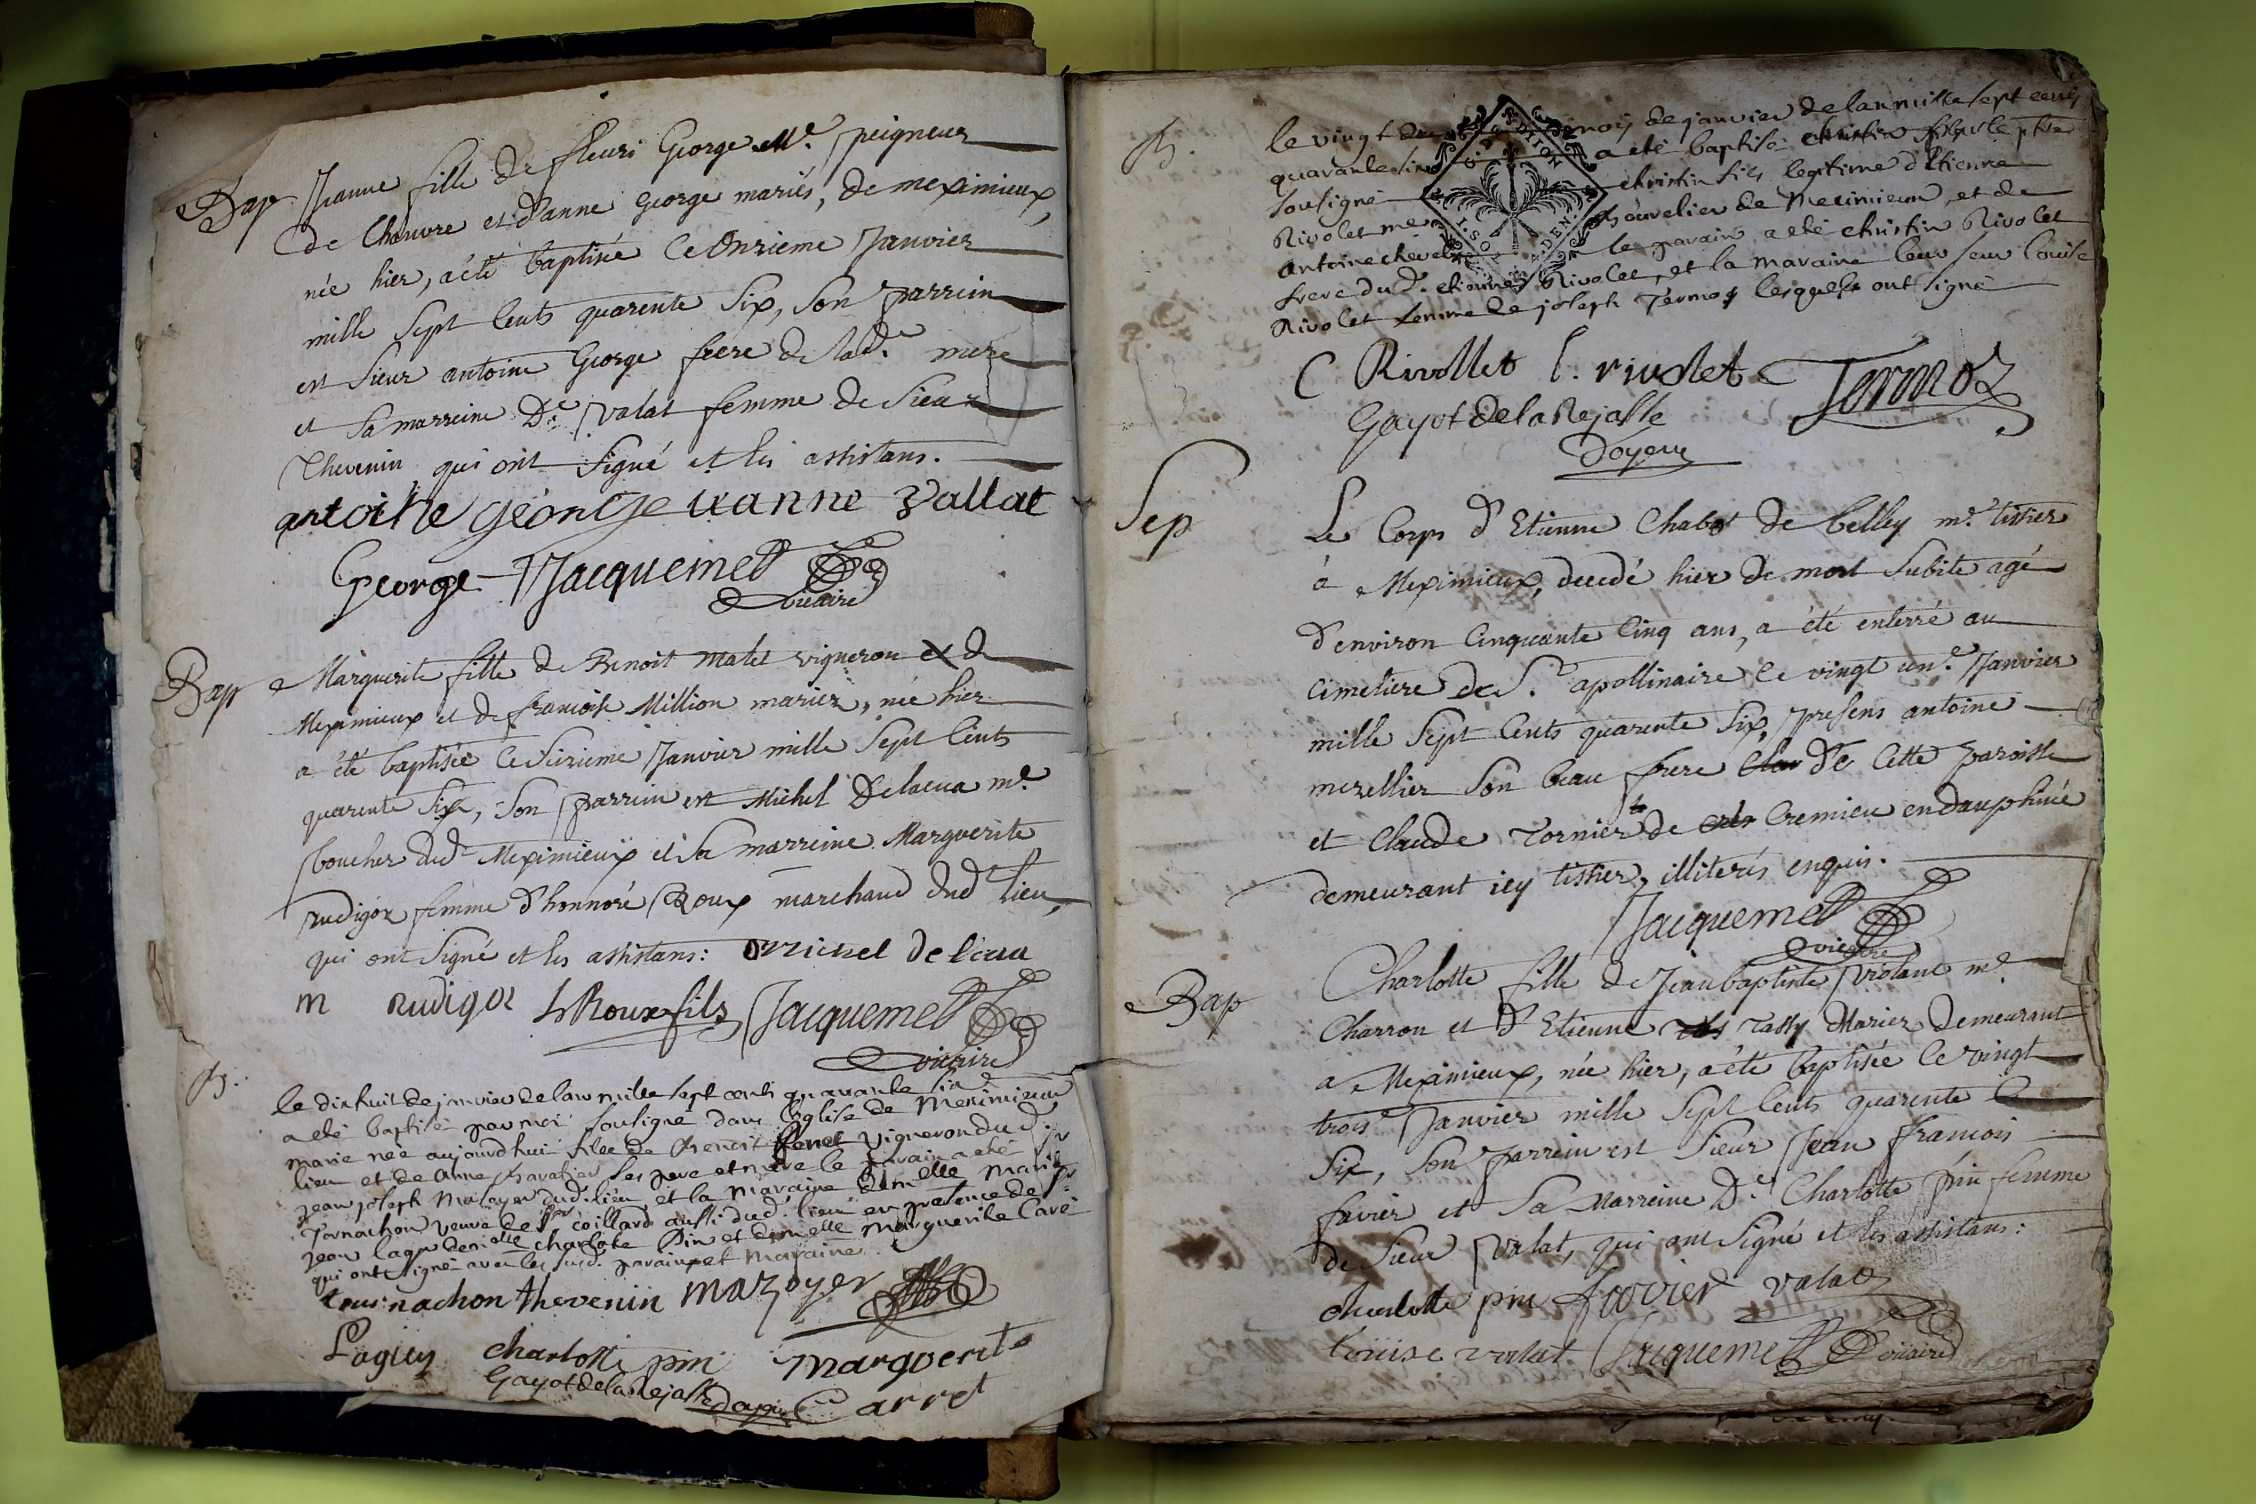 Bap
Jeanne fille de fleuri George Me. peigneur
de Chanvre et d'anne George mariés, de meximieux,
née hier, a été baptisée ce Onzieme Janvier
mille Sept Cents quarente Six, Son parrein
est Sieur antoine George frere de lad.e mere
et Sa marreine De. valat femme de Sieur
Thevenin qui ont Signé et les assistans.
antoine george vanne vallat
George Jacquemet
vicaire
Bap
Marguerite fille de Benoit matet vigneron de
Meximieux et de francoise Million mariez, née hier
a été baptisée ce Seizieme Janvier mille Sept Cents
quarente Six, Son parrein est Michel Delacua me.
boucher dud. Meximieux et Sa marreine Marguerite
rudigoz femme d'honnoré Roux marchand dud. lieu,
qui ont Signé et les assistans: michel de lcua
m rudigoz h Roux fils Jacquemet
vicaire
B.
le dixhuit de janvier de lan mille sept cents quarante six
a eté baptisé par moi sousigné dans l'eglise de Meximieux
marie neé aujourdhui fille de Benoit vigneron dud.
lieu et de Anne ses pere et mere le parain a eté
jean joseph Mazoyer dud. lieu et la maraine demelle Marie
Tornachon veuve de Sr coillard aussi dud. lieu en presence de Sr
jean demelle charlote Pin et demelle Marguerite Caré
qui ont signé avec les susd. parain et maraine
tournachon thevenin mazoyer
Lagier charlotte pin marguerite
Gayot de la Rejasse doyen Carret
B.
le vingt moiş de janvier de lan mille sept cents
quarante six a eté baptisé christin par le ptre
sousigné christin fils legitime d'Etienne
Rivolet me chavelier de Meximieux, et de
antoine le parain a eté christin Rivolet
frere dud. etienne Rivolet, et la maraine leur seur louise
Rivolet femme de joseph Termoz lesquels ont signé
C Rivollet l. rivolet Termoz
Gayot de la Rejasse
Doyen
Sep
Le Corps d'Etienne Chabot de belley me. tissier
à Meximieux, decedé hier de mort Subite agé
d'environ Cinquante Cinq ans, a été enterré au
Cimetiere de St. apollinaire le vingt un.e Janvier
mille Sept Cents quarente Six, presens antoine
mezellier Son beau frere de Cette paroisse
et Claude Tornier de Cremieu en dauphiné
demeurant icy tissier, illiterés enquis.
Jacquemet
vicaire
Bap
Charlotte fille de Jean baptiste violant me.
Charron et d'Etienne Tassy Mariez demeurant
a Meximieux, née hier, a été baptisée le vingt
trois Janvier mille Sept Cents quarente
Six, Son parrein est Sieur Jean francois
favier et Sa Marreine De. Charlotte pin femme
de Sieur valat, qui ont Signé et les assistans:
charlotte pin favier valat
louise valat Jacquemet vicaire